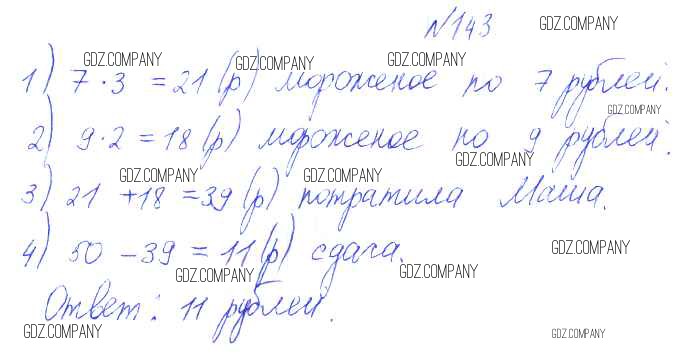 №143
1) 7·3 =21(р) мороженое по 7 рублей.
2) 9·2=18(р) мороженое по 9 рублей.
3) 21 +18 =39(р) потратила Маша.
4) 50 -39 = 11(р) сдача.
Ответ: 11 рублей.
GDZ.COMPANY
GDZ.COMPANY
GDZ.COMPANY
GDZ.COMPANY
GDZ.COMPANY
GDZ.COMPANY
GDZ.COMPANY
GDZ.COMPANY
GDZ.COMPANY
GDZ.COMPANY
GDZ.COMPANY
GDZ.COMPANY
GDZ.COMPANY